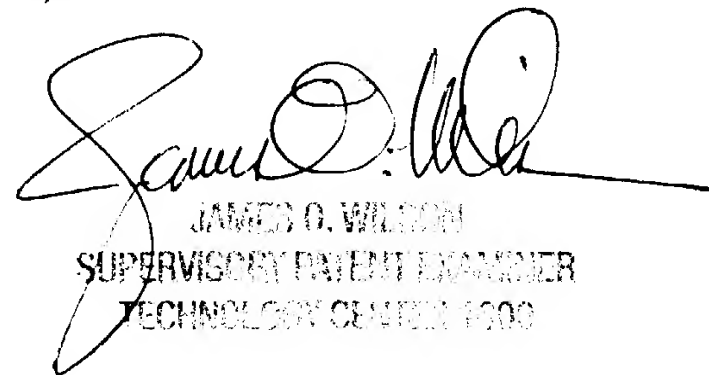 James O. Wilson
JAMES O. WILSON
SUPERVISORY PATENT EXAMINER
TECHNOLOGY CENTER 1600